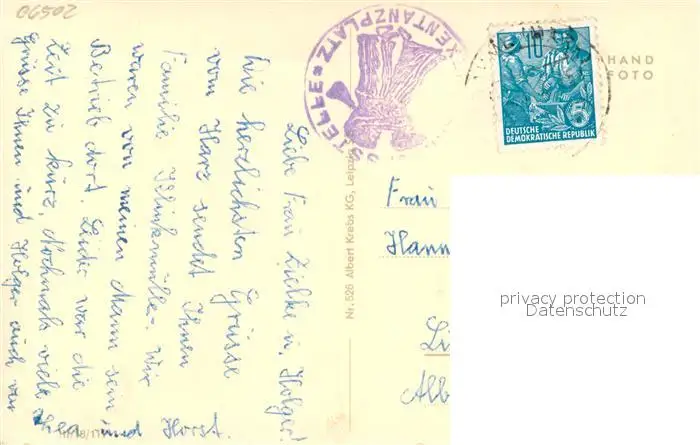 06502
Liebe Frau Zielke u. Holger!
Die herzlichsten Grüsse
vom Harz sendet Ihnen
Familie Klinkmüller. Wir
waren von meinen Mann sein
Betrieb dort. Leider war die
Zeit zu kurz. Nochmals viele
Grüsse Ihnen und Holger auch von
Thea und Horst.
STELLE * HEXENTANZPLATZ
10
DEUTSCHE
DEMOKRATISCHE REPUBLIK
5
HAND
FOTO
Nr. 526 Albert Krebs KG, Leipzig
Frau
Hann
Li
Alb
privacy protection
Datenschutz